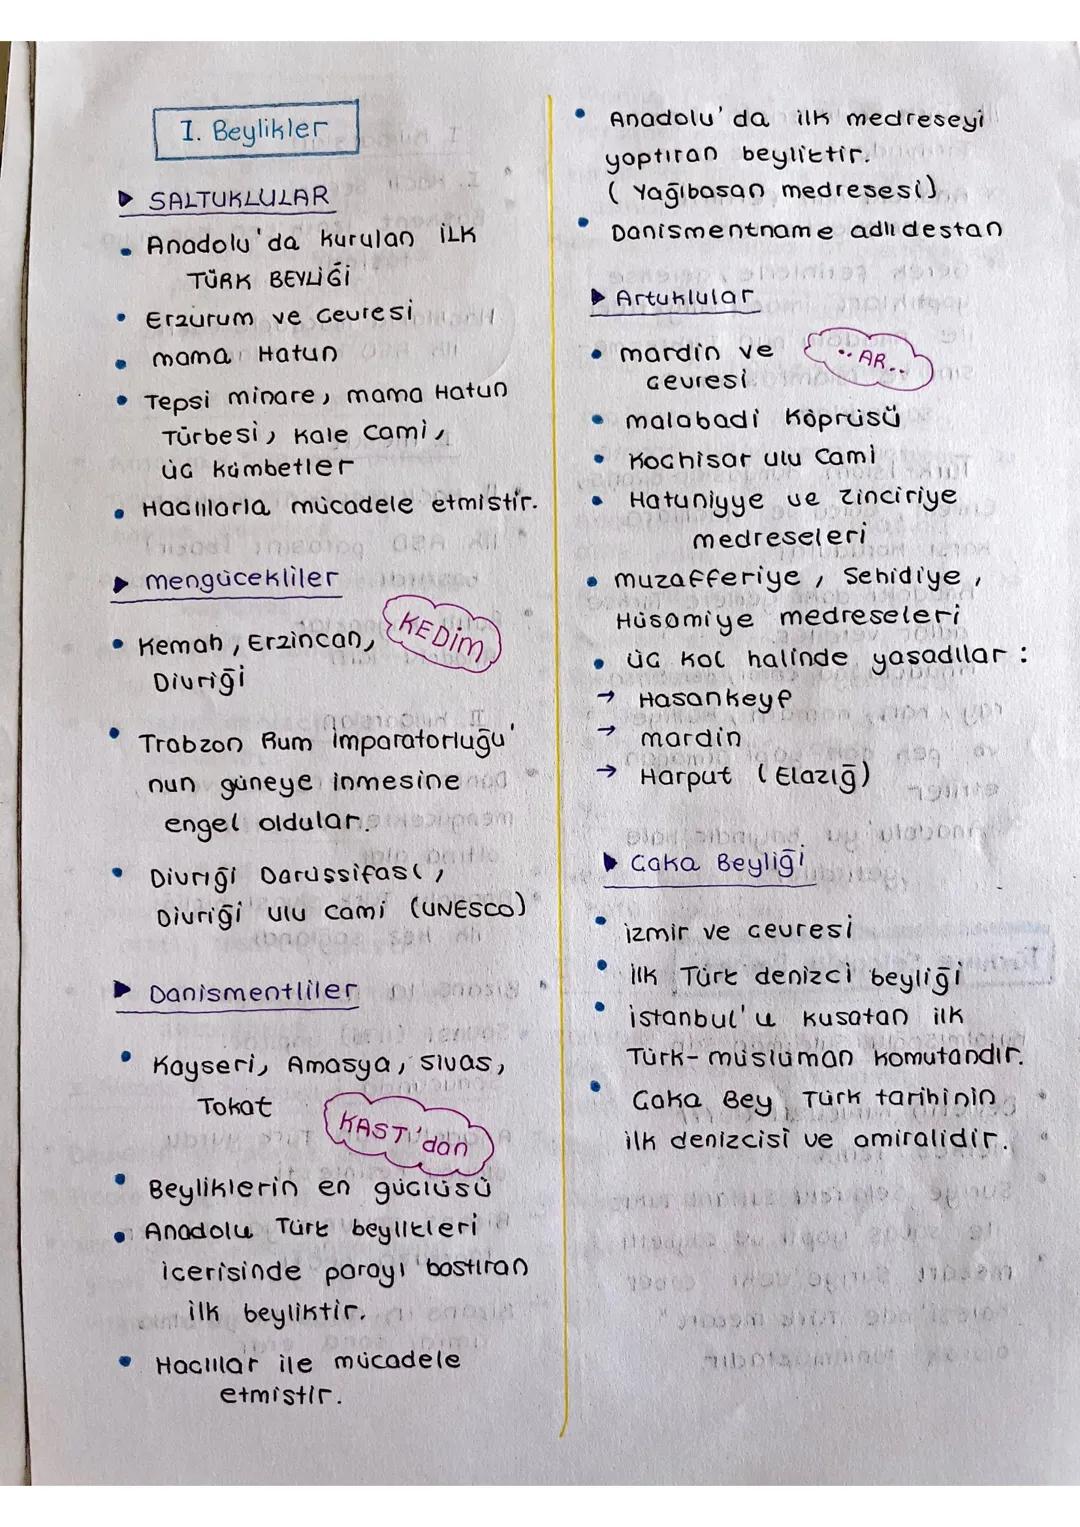 I. Beylikler
SALTUKLULAR
Anadolu'da kurulan iLK
TÜRK BEYLİĞİ
Erzurum ve Cevresi
mama Hatun
Tepsi minare, mama Hatun
Türbesi, Kale Cami,
üc Kümbetler
Haclılarla mücadele etmistir.
mengücekliler
Kemah, Erzincan,
Divriği
KEDİM
Trabzon Rum imparatorluğu'
nun güneye inmesine
engel oldular.
Divriği Darussifası,
Divriği ulu cami (UNESCO)
Danismentliler
Kayseri, Amasya, sıvas,
Tokat
KAST'dan
Beyliklerin en güclüsü
Anadolu Türk beylikleri
icerisinde parayı bastıran
ilk beyliktir.
Haclılar ile mücadele
etmistir.
Anadolu'da ilk medreseyi
yaptıran beyliktir.
(Yağıbasan medresesi)
Danismentname adlı destan
Artuklular
mardin ve
cevresi
..AR..
malabadi Köprüsü
Kochisar ulu Cami
Hatuniyye ve zinciriye
medreseleri
muzafferiye, Sehidiye,
Hüsamiye medreseleri
üc kol halinde yasadılar:
→ Hasankeyf
→ mardin
→ Harput (Elazığ)
Caka Beyliği
izmir ve cevresi
ilk Türk denizci beyliği
istanbul'u kusatan ilk
Türk-müslüman komutandır.
Caka Bey Türk tarihinin
ilk denizcisi ve amiralidir.